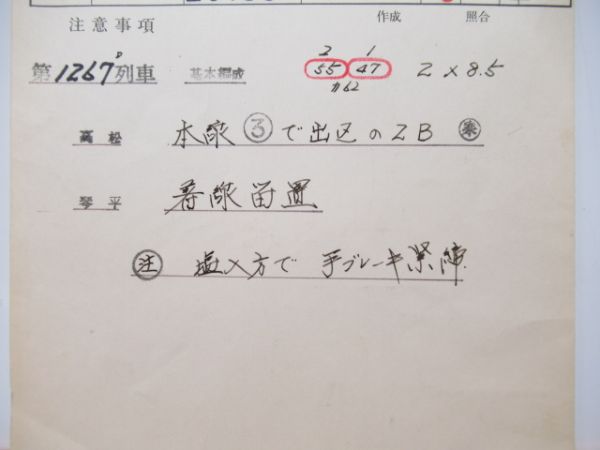 作成 照合
注意事項
2 1
第1267D列車 基本編成 55 47 2×8.5
カ62
高松 本線③で出区の2B
琴平 着線留置
注 で 手ブレーキ緊締